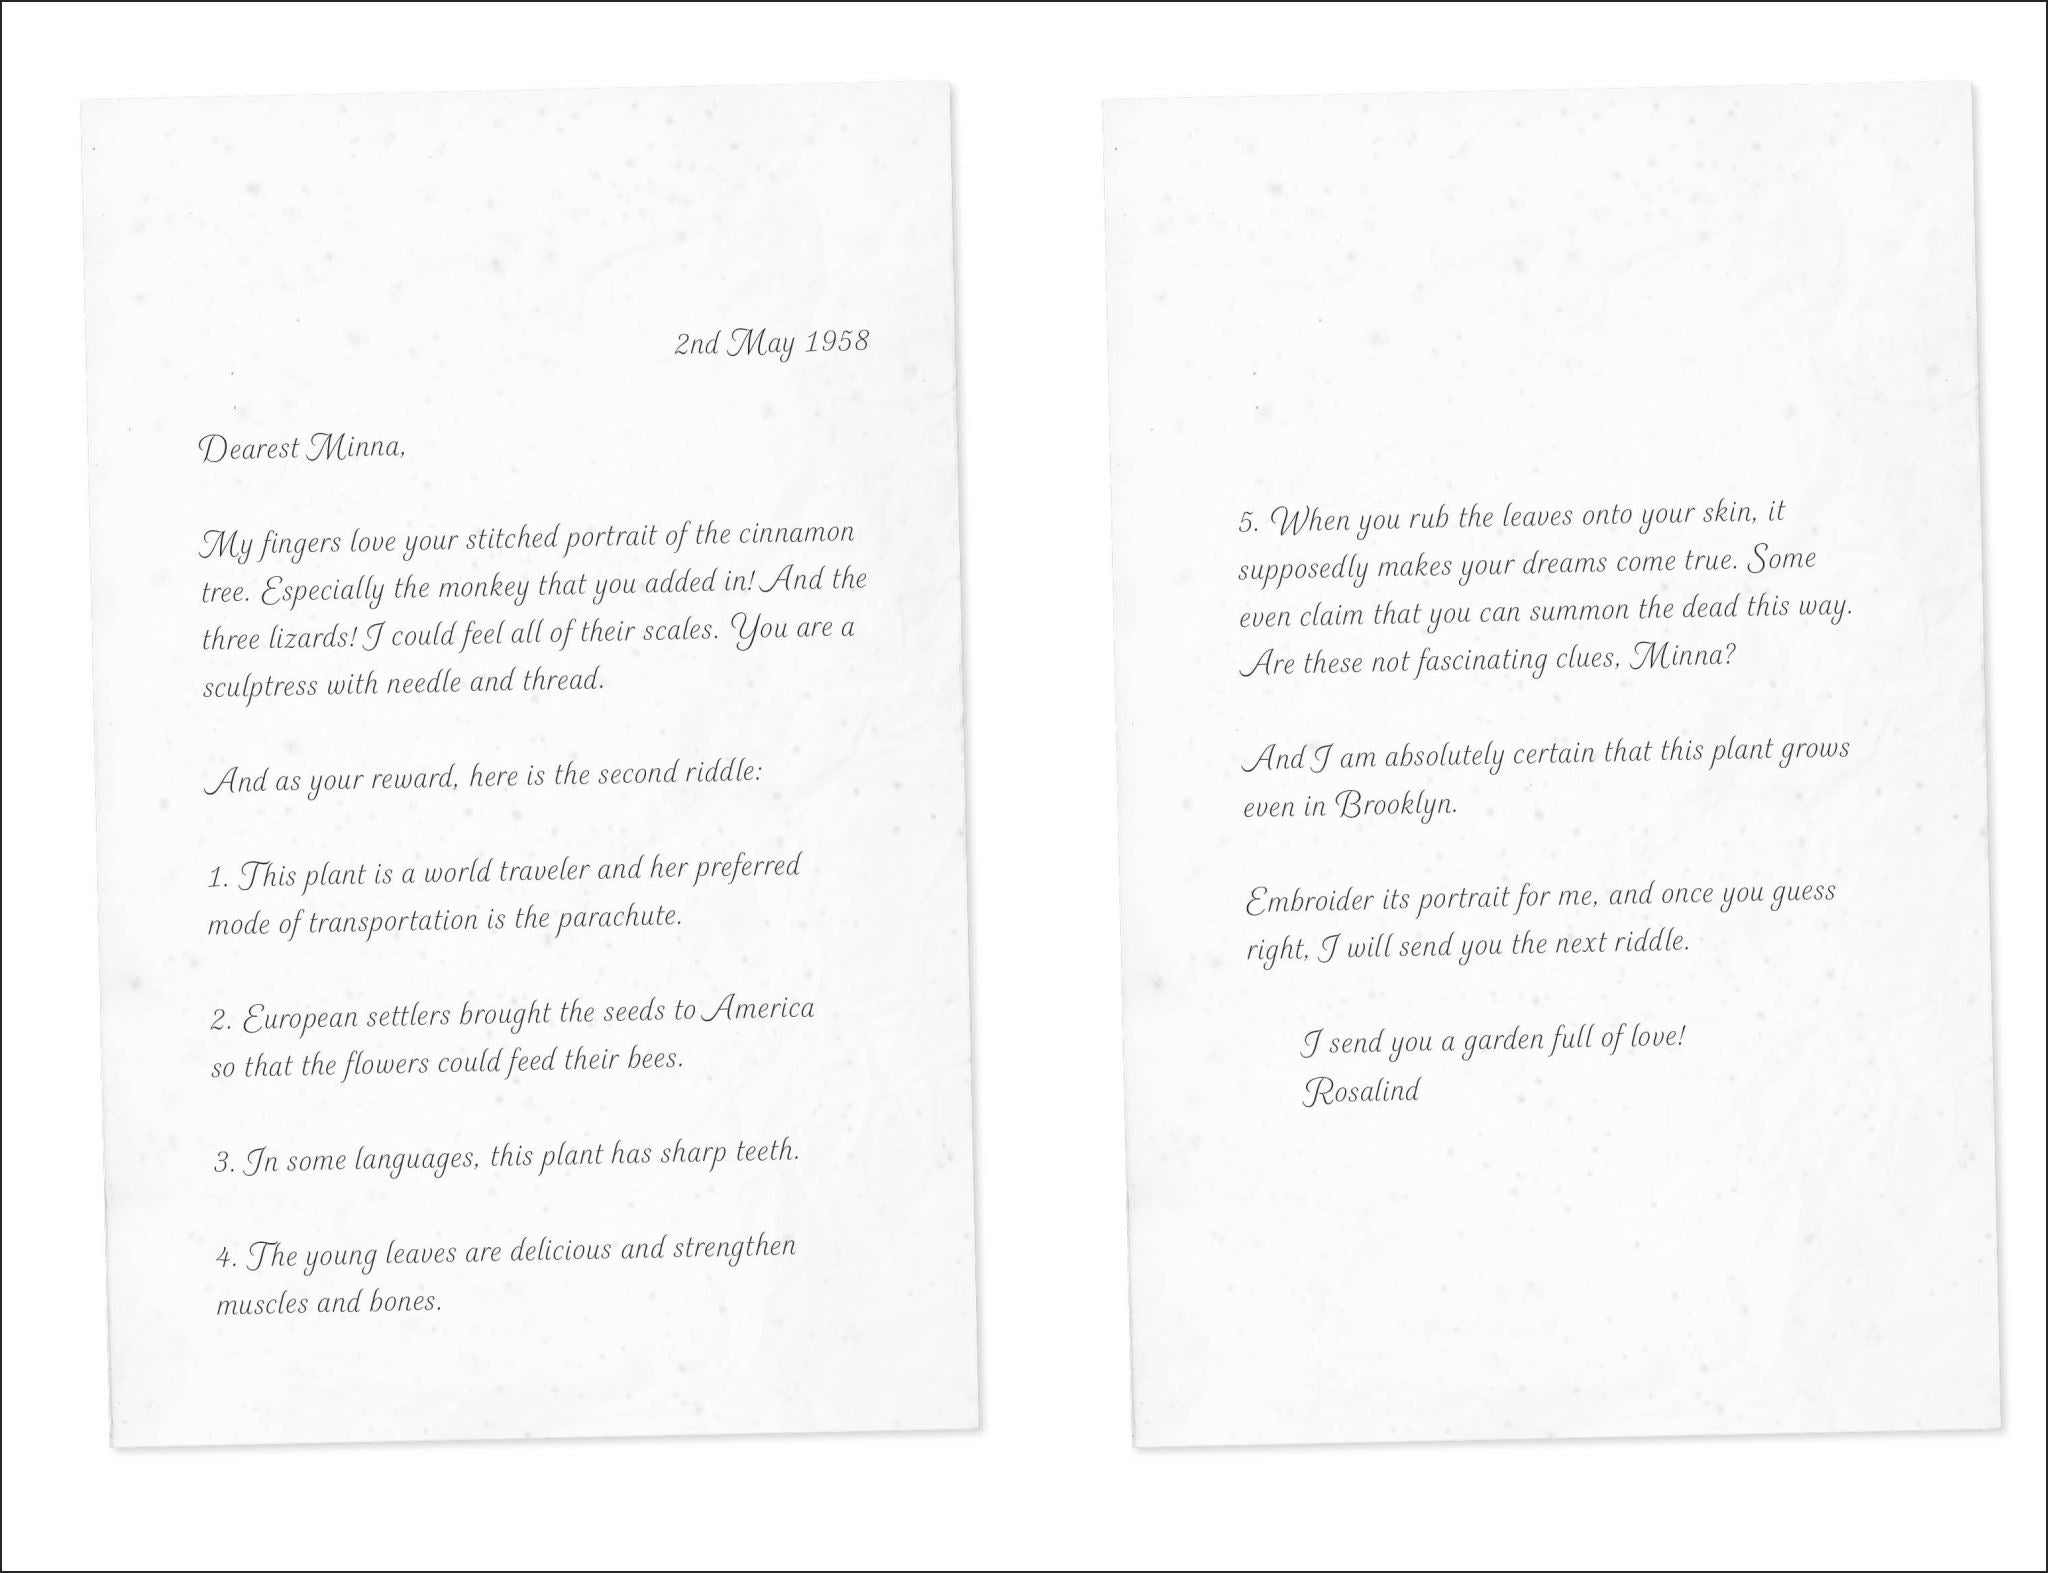 2nd May 1958
Dearest Minna,
My fingers love your stitched portrait of the cinnamon
tree. Especially the monkey that you added in! And the
three lizards! I could feel all of their scales. You are a
sculptress with needle and thread.
And as your reward, here is the second riddle:
1. This plant is a world traveler and her preferred
mode of transportation is the parachute.
2. European settlers brought the seeds to America
so that the flowers could feed their bees.
3. In some languages, this plant has sharp teeth.
4. The young leaves are delicious and strengthen
muscles and bones.
5. When you rub the leaves onto your skin, it
supposedly makes your dreams come true. Some
even claim that you can summon the dead this way.
Are these not fascinating clues, Minna?
And I am absolutely certain that this plant grows
even in Brooklyn.
Embroider its portrait for me, and once you guess
right, I will send you the next riddle.
I send you a garden full of love!
Rosalind